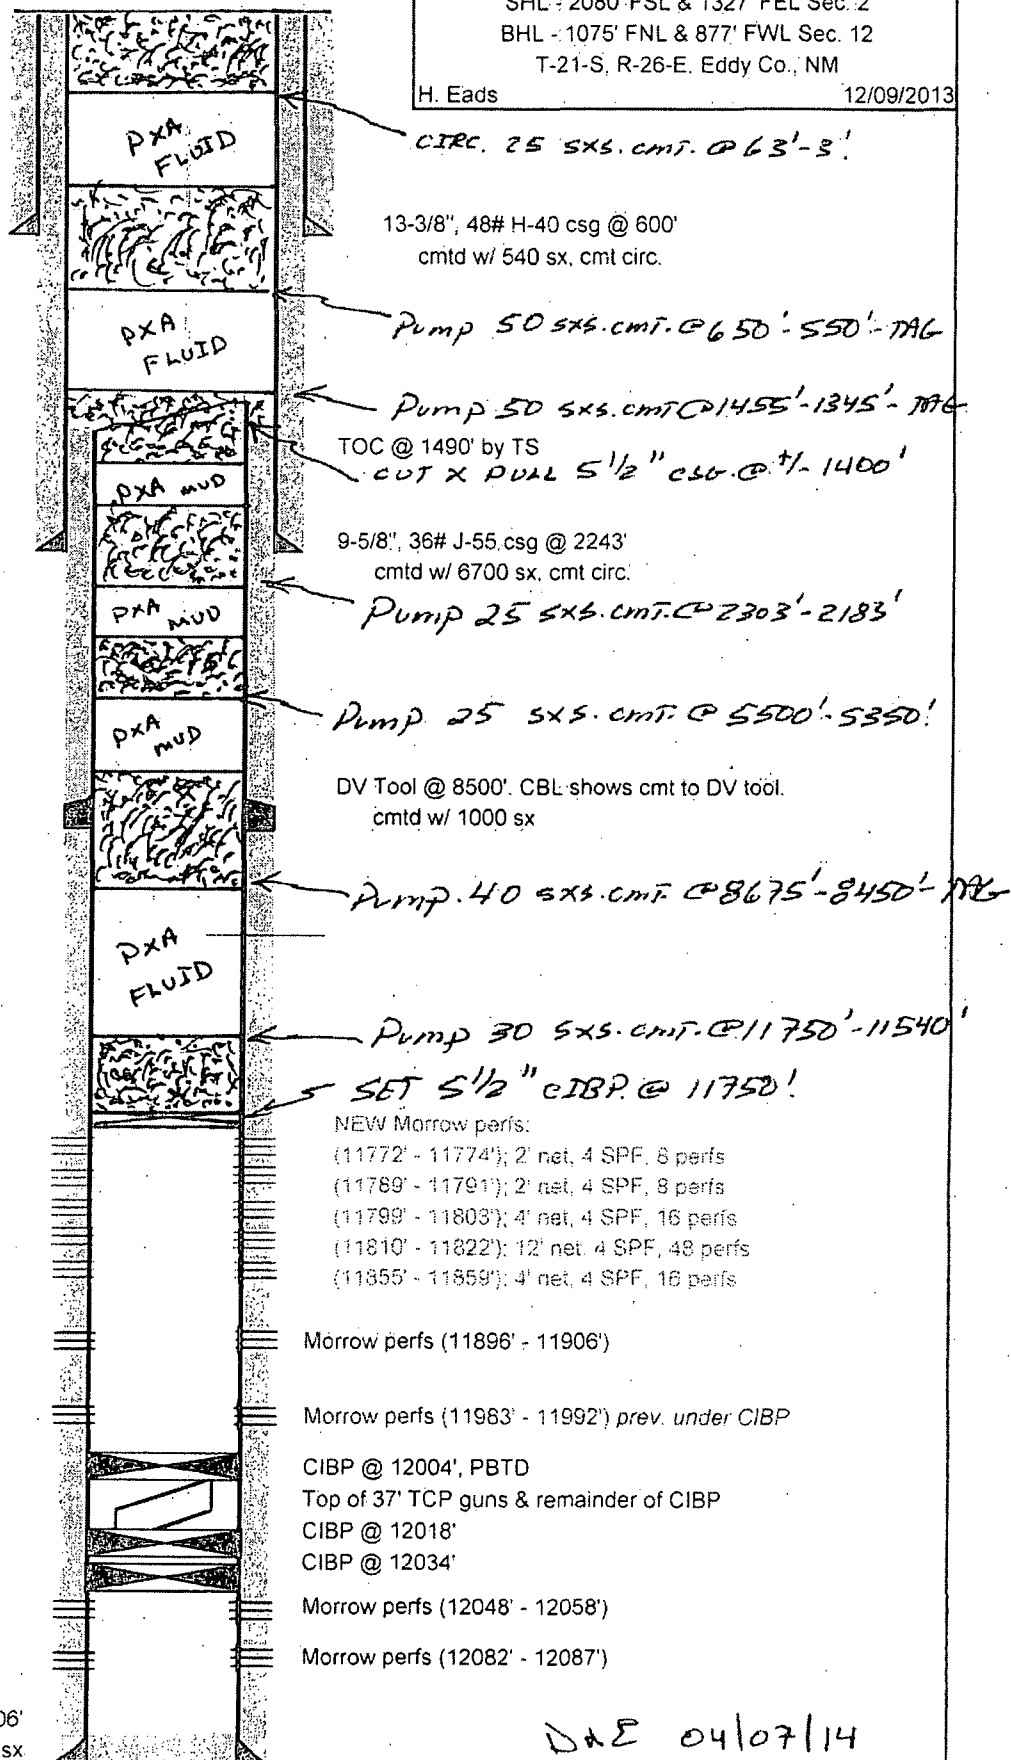 SHL - 2080' FSL & 1327' FEL Sec. 2
BHL - 1075' FNL & 877' FWL Sec. 12
T-21-S, R-26-E, Eddy Co., NM
H. Eads 12/09/2013
PXA
FLUID
CIRC. 25 SXS. CMT. @ 63'-3'.
13-3/8", 48# H-40 csg @ 600'
cmtd w/ 540 sx, cmt circ.
Pump 50 SXS. CMT. @ 650'-550'-TAG
PXA
FLUID
Pump 50 SXS. CMT @ 1455'-1345'-TAG
TOC @ 1490' by TS
CUT X PULL 5 1/2" CSG. @ +/- 1400'
PXA MUD
9-5/8", 36# J-55 csg @ 2243'
cmtd w/ 6700 sx, cmt circ.
PXA MUD
Pump 25 SXS. CMT. @ 2303'-2183'
Pump 25 SXS. CMT. @ 5500'-5350'.
PXA
MUD
DV Tool @ 8500'. CBL shows cmt to DV tool.
cmtd w/ 1000 sx
Pump 40 SXS. CMT. @ 8675'-8450'-TAG
PXA
FLUID
Pump 30 SXS. CMT. @ 11750'-11540'
SET 5 1/2" CIBP. @ 11750'.
NEW Morrow perfs:
(11772' - 11774'); 2' net, 4 SPF, 8 perfs
(11789' - 11791'); 2' net, 4 SPF, 8 perfs
(11799' - 11803'); 4' net, 4 SPF, 16 perfs
(11810' - 11822'); 12' net, 4 SPF, 48 perfs
(11855' - 11859'); 4' net, 4 SPF, 16 perfs
Morrow perfs (11896' - 11906')
Morrow perfs (11983' - 11992') prev. under CIBP
CIBP @ 12004', PBTD
Top of 37' TCP guns & remainder of CIBP
CIBP @ 12018'
CIBP @ 12034'
Morrow perfs (12048' - 12058')
Morrow perfs (12082' - 12087')
06'
sx
DXE 04/07/14